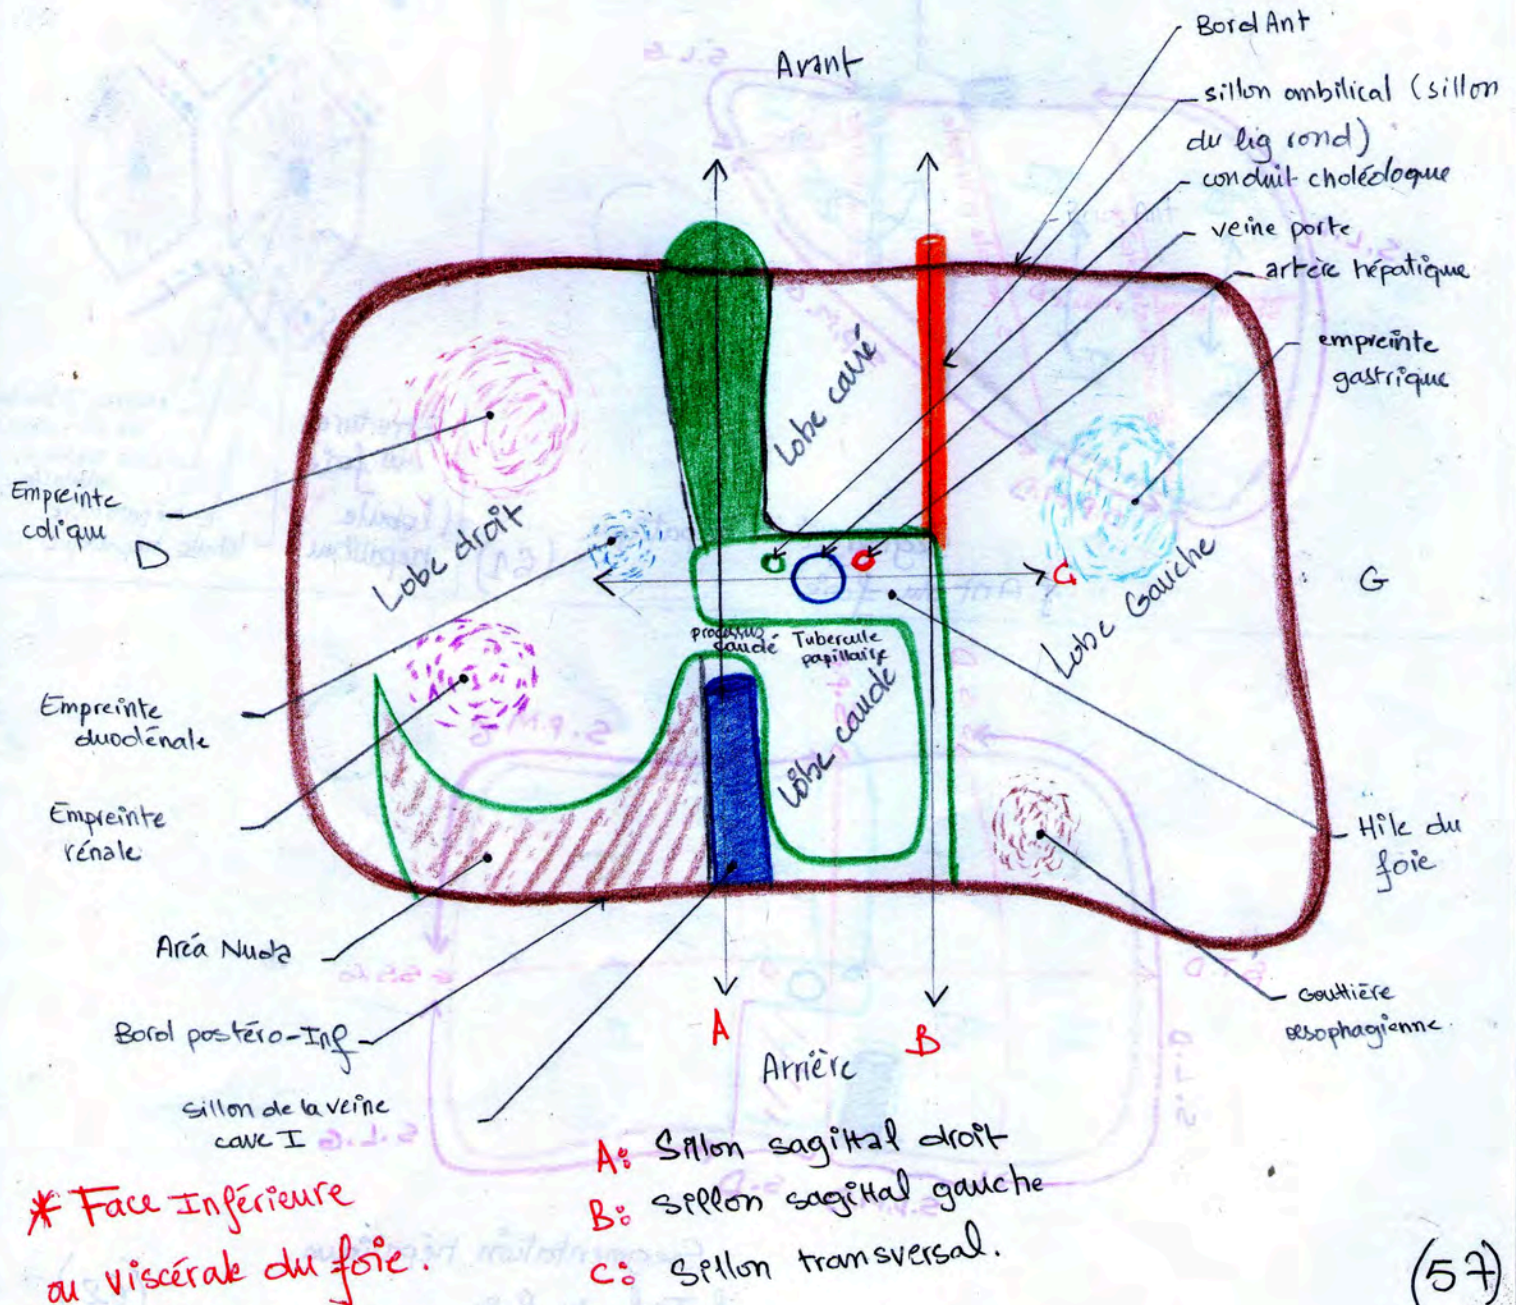 Avant
Bord Ant
sillon ombilical (sillon
du lig rond)
conduit cholédoque
veine porte
artère hépatique
empreinte
gastrique
Lobe carré
Empreinte
colique
D
Lobe droit
C
G
Lobe Gauche
processus
caudé
Tubercule
papillaire
Lobe caudé
Empreinte
duodénale
Empreinte
rénale
Hile du
foie
Aréa Nuda
Gouttière
œsophagienne.
Bord postéro-Inf
A
B
Arrière
Sillon de la veine
cave I
A: Sillon sagittal droit
B: Sillon sagittal gauche
C: Sillon transversal.
* Face Inférieure
ou viscérale du foie.
(57)